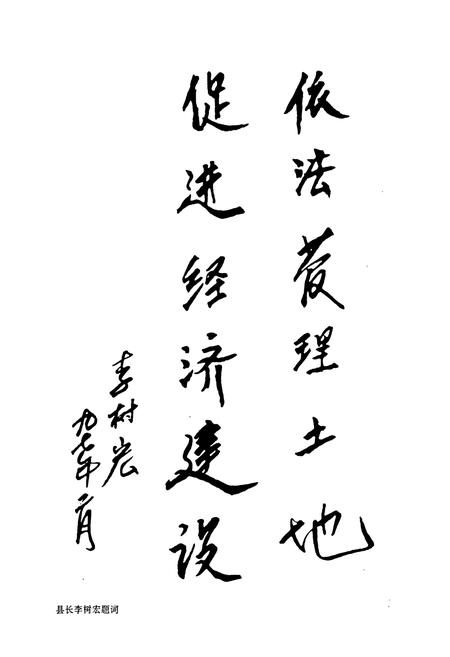 依法管理土地
促进经济建设
李树宏
九七年二月
县长李树宏题词